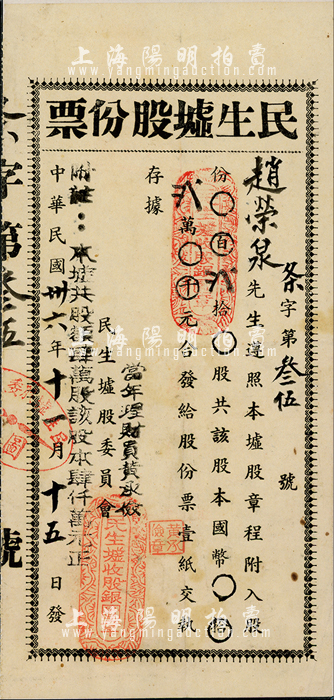 上海陽明拍賣
www.yangmingauction.com
民生墟股份票
條字第叁伍號
趙榮泉先生遵照本墟股章程附入股
份〇百弍拾〇股共該股本國幣〇拾
弍萬〇千〇元合發給股份票壹紙交執
存據
當年理財員黃永繳
民生墟股委員會
附註：本墟共股肆萬股該股本肆仟萬元正
中華民國卅六年十一月十五日發
民生墟收股銀
字第叁伍號